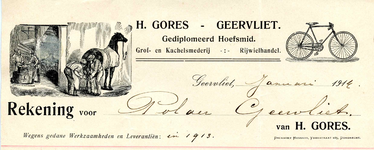 H. GORES - GEERVLIET.
Gediplomeerd Hoefsmid.
Grof- en Kachelsmederij -:- Rijwielhandel.
Geervliet, Januari 1914
Rekening voor Polau Geervliet
van H. GORES.
Wegens gedane Werkzaamheden en Leverantiën: in 1913.